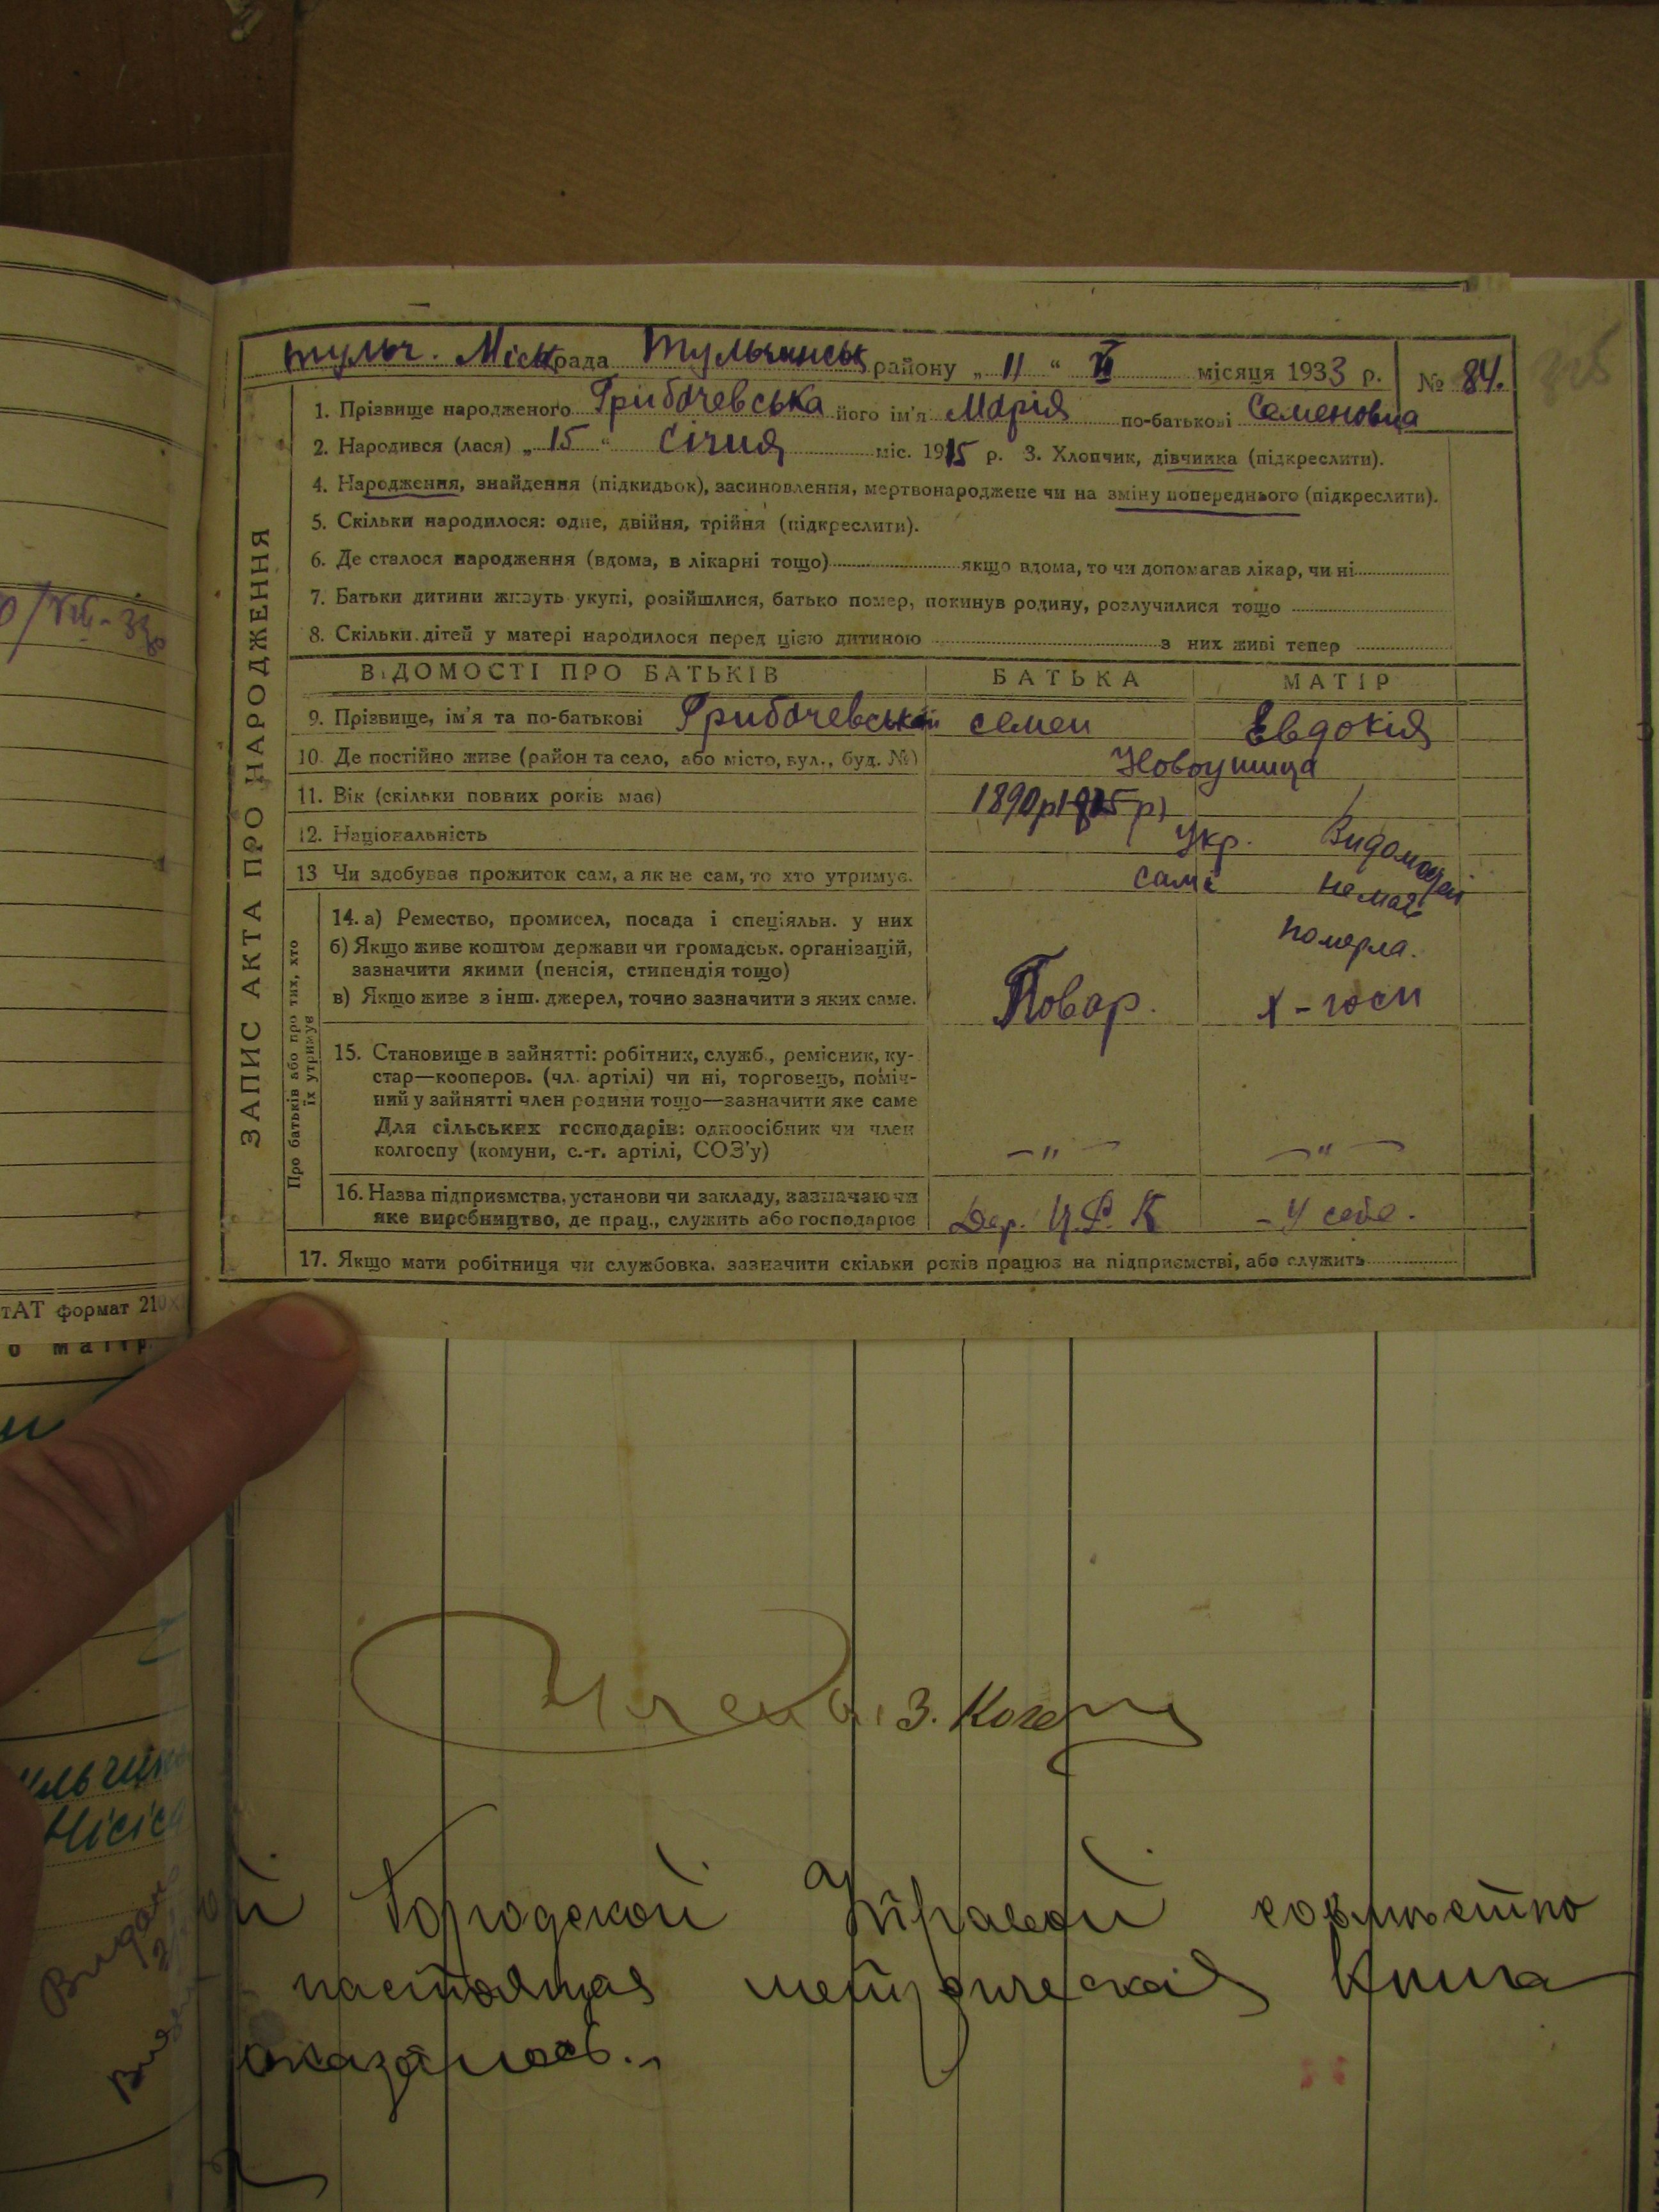 Тульч. Міськрада Тульчинськ району „ 11 “ VI місяця 1933 р. № 84.
ЗАПИС АКТА ПРО НАРОДЖЕННЯ
1. Прізвище народженого Грибачевська його ім'я Марія по-батькові Семеновна
2. Народився (лася) „ 15 “ Січня міс. 1915 р. 3. Хлопчик, дівчинка (підкреслити).
4. Народження, знайдення (підкидьок), засиновлення, мертвонароджене чи на зміну попереднього (підкреслити).
5. Скільки народилося: одне, двійня, трійня (підкреслити).
6. Де сталося народження (вдома, в лікарні тощо) якщо вдома, то чи допомагав лікар, чи ні
7. Батьки дитини живуть укупі, розійшлися, батько помер, покинув родину, розлучилися тощо
8. Скільки дітей у матері народилося перед цією дитиною з них живі тепер
ВІДОМОСТІ ПРО БАТЬКІВ БАТЬКА МАТІР
9. Прізвище, ім'я та по-батькові Грибачевськ семен Евдокія
10. Де постійно живе (район та село, або місто, вул., буд. №) Новоушица
11. Вік (скільки повних років має) 1890р
12. Національність Укр. Видомостей
13 Чи здобував прожиток сам, а як не сам, то хто утримує. самі немає
Про батьків або про тих, хто їх утримує
14. а) Ремество, промисел, посада і спеціяльн. у них
б) Якщо живе коштом держави чи громадськ. організацій, померла.
зазначити якими (пенсія, стипендія тощо)
в) Якщо живе з інш. джерел, точно зазначити з яких саме. Повар. х-госп
15. Становище в зайнятті: робітник, служб., ремісник, ку-
стар—кооперов. (чл. артілі) чи ні, торговець, поміч-
ний у зайнятті член родини тощо—зазначити яке саме
Для сільських господарів: одноосібник чи член
колгоспу (комуни, с.-г. артілі, СОЗ'у) —"— —"—
16. Назва підприємства, установи чи закладу, зазначаючи
яке виробництво, де прац., служить або господарює Дер. Ц.Р.К - У себе.
17. Якщо мати робітниця чи службовка, зазначити скільки років працює на підприємстві, або служить
тАТ формат 210х
о матір
З.
й Городской Управой совместно
настоящая метрическая книга
оказалось.